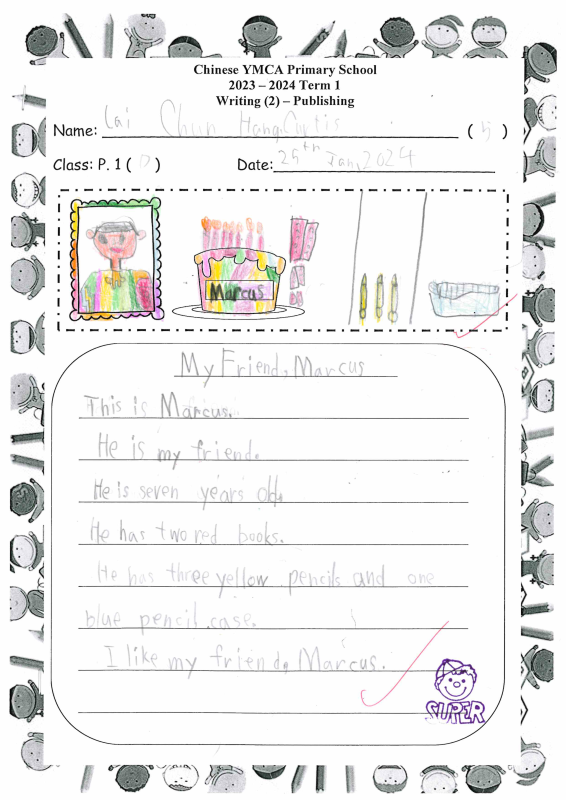 Chinese YMCA Primary School
2023 – 2024 Term 1
Writing (2) – Publishing
Name: Lai Chun Hang, Curtis ( 5 )
Class: P. 1 ( D ) Date: 25th Jan, 2024
Marcus
My Friend, Marcus
This is Marcus.
He is my friend.
He is seven years old.
He has two red books.
He has three yellow pencils and one
blue pencil case.
I like my friend, Marcus.
SUPER